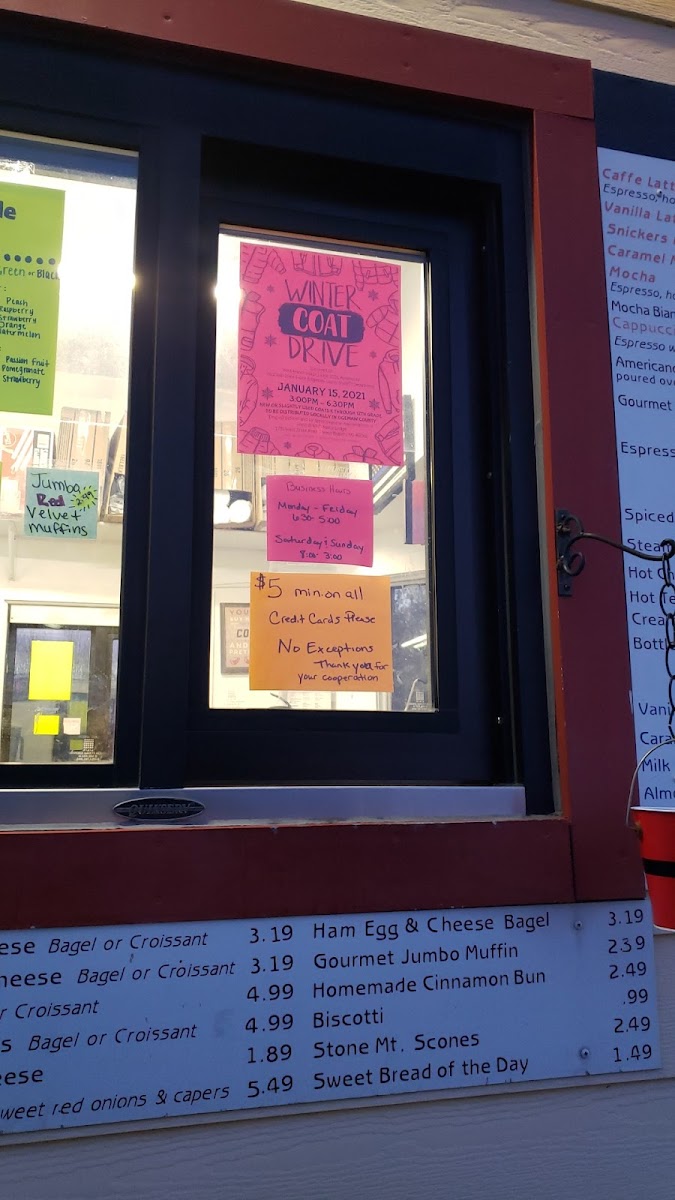 Green or Black
Peach
Raspberry
Strawberry
Orange
Watermelon
Passion Fruit
Pomegranate
Strawberry
Jumbo
Red 2.49
Velvet
muffins
WINTER
COAT
DRIVE
JANUARY 15, 2021
3:00PM – 6:30PM
Business Hours
Monday - Friday
6:30- 5:00
Saturday & Sunday
8:00- 3:00
$5 min. on all
Credit Cards Please
No Exceptions
Thank you for
your cooperation
Caffe Latt
Espresso, ho
Vanilla Lat
Snickers
Caramel M
Mocha
Espresso, ho
Mocha Bian
Cappucci
Espresso w
American
poured ove
Gourmet
Espress
Spiced
Stea
Hot Ch
Hot Te
Crea
Bottl
Vani
Cara
Milk
Almo
eese Bagel or Croissant 3.19
heese Bagel or Croissant 3.19
r Croissant 4.99
s Bagel or Croissant 4.99
eese 1.89
weet red onions & capers 5.49
Ham Egg & Cheese Bagel 3.19
Gourmet Jumbo Muffin 2.39
Homemade Cinnamon Bun 2.49
Biscotti .99
Stone Mt. Scones 2.49
Sweet Bread of the Day 1.49